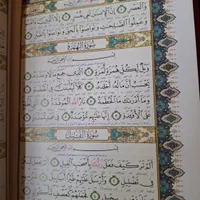 وَالْعَصْرِ إِنَّ الْإِنْسَانَ لَفِي خُسْرٍ إِلَّا الَّذِينَ آمَنُوا
وَعَمِلُوا الصَّالِحَاتِ وَتَوَاصَوْا بِالْحَقِّ وَتَوَاصَوْا بِالصَّبْرِ
سُورَةُ الْهُمَزَةِ
بِسْمِ اللَّهِ الرَّحْمَٰنِ الرَّحِيمِ
وَيْلٌ لِكُلِّ هُمَزَةٍ لُمَزَةٍ الَّذِي جَمَعَ مَالًا وَعَدَّدَهُ
يَحْسَبُ أَنَّ مَالَهُ أَخْلَدَهُ كَلَّا لَيُنْبَذَنَّ فِي الْحُطَمَةِ
وَمَا أَدْرَاكَ مَا الْحُطَمَةُ نَارُ اللَّهِ الْمُوقَدَةُ الَّتِي تَطَّلِعُ
عَلَى الْأَفْئِدَةِ إِنَّهَا عَلَيْهِمْ مُؤْصَدَةٌ فِي عَمَدٍ مُمَدَّدَةٍ
سُورَةُ الْفِيلِ
بِسْمِ اللَّهِ الرَّحْمَٰنِ الرَّحِيمِ
أَلَمْ تَرَ كَيْفَ فَعَلَ رَبُّكَ بِأَصْحَابِ الْفِيلِ أَلَمْ يَجْعَلْ كَيْدَهُمْ
فِي تَضْلِيلٍ وَأَرْسَلَ عَلَيْهِمْ طَيْرًا أَبَابِيلَ